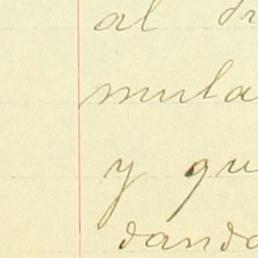 al
mula
y qu
danda